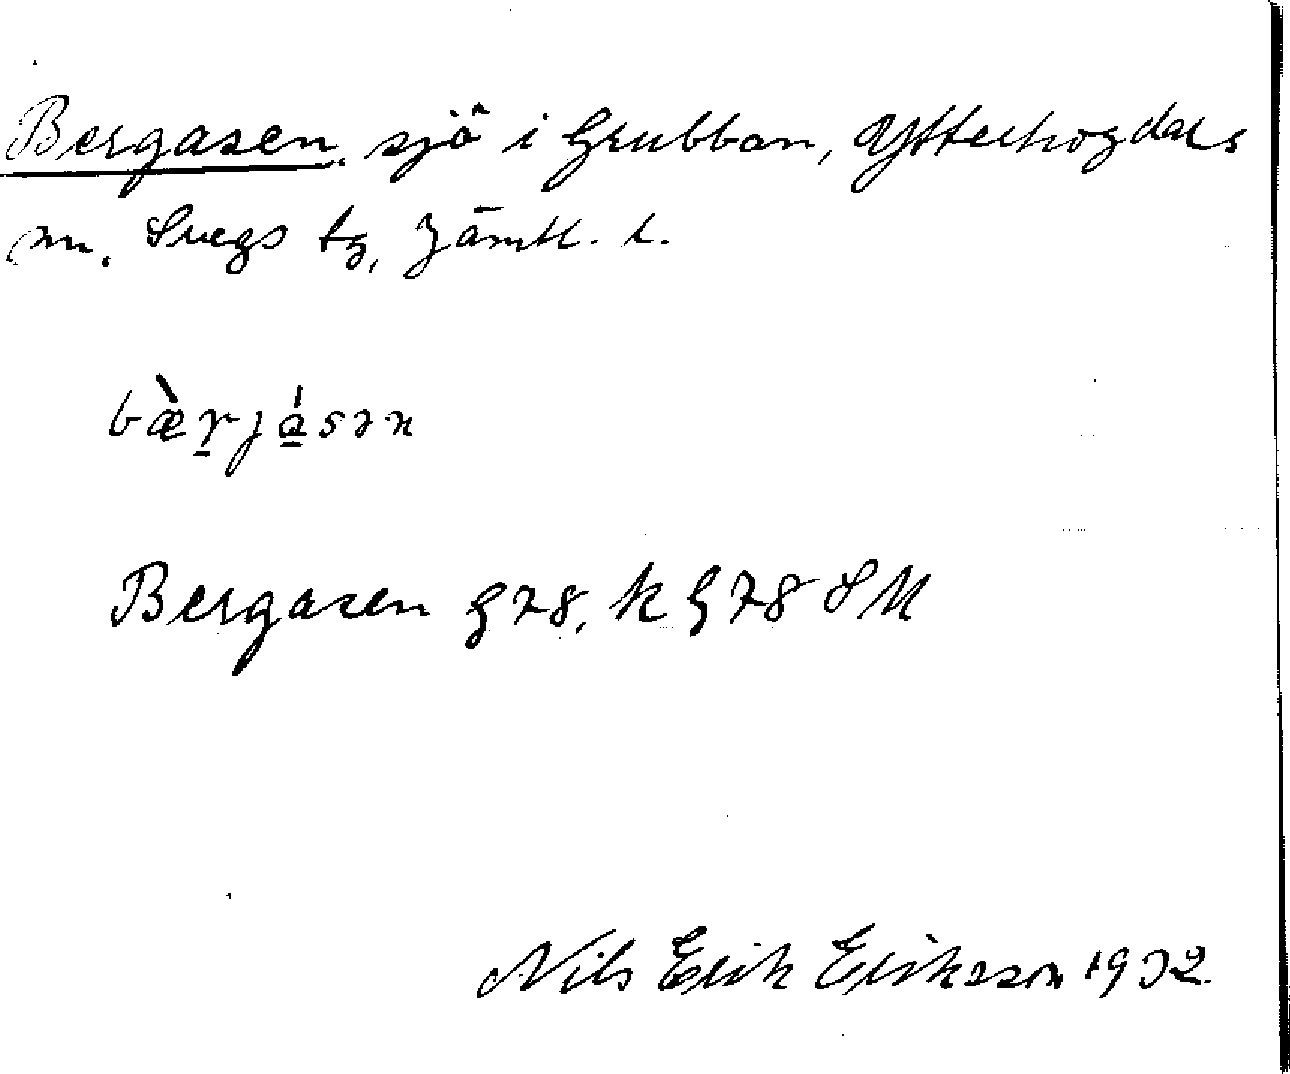 Bergasen, sjö i Grubban, Ytterhogdals
sn. Svegs tg, Jämtl. l.
bæ̀r̠ja̠̍sən
Bergasen G 78, K G 78 S M
Nils Erik Eriksson 1932